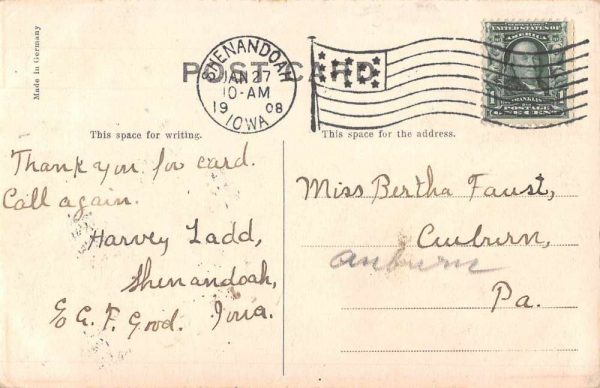 Made in Germany
POST CARD
SHENANDOAH
JAN 27
10-AM
1908
IOWA
UNITED STATES OF
AMERICA
FRANKLIN
POSTAGE
ONE CENT
This space for writing.
This space for the address.
Thank you for card.
Call again.
Harvey Ladd,
Shenandoah,
E.G.F. Good. Iowa.
Miss Bertha Faust,
Auburn,
auburn
Pa.